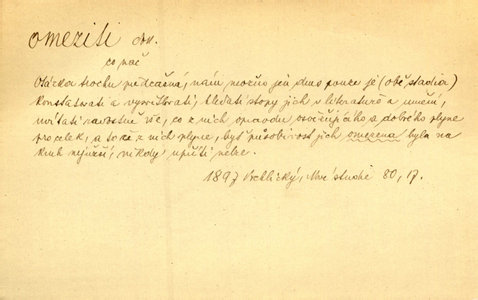 omeziti dok.
co nač
Otázka trochu předčasná, nám možno jen dnes pouze je (obě stadia)
konstatovati a vysvětlovati, hledati stopy jich v literatuře a umění,
uvítati radostně vše, co z nich opravdu osvěžujícího a dobrého plyne
pro celek, a to že z nich plyne, byť působivost jich omezena byla na
kruh nejužší, nikdy upříti nelze.
1897 Vrchlický, Nové studie 80, 17.